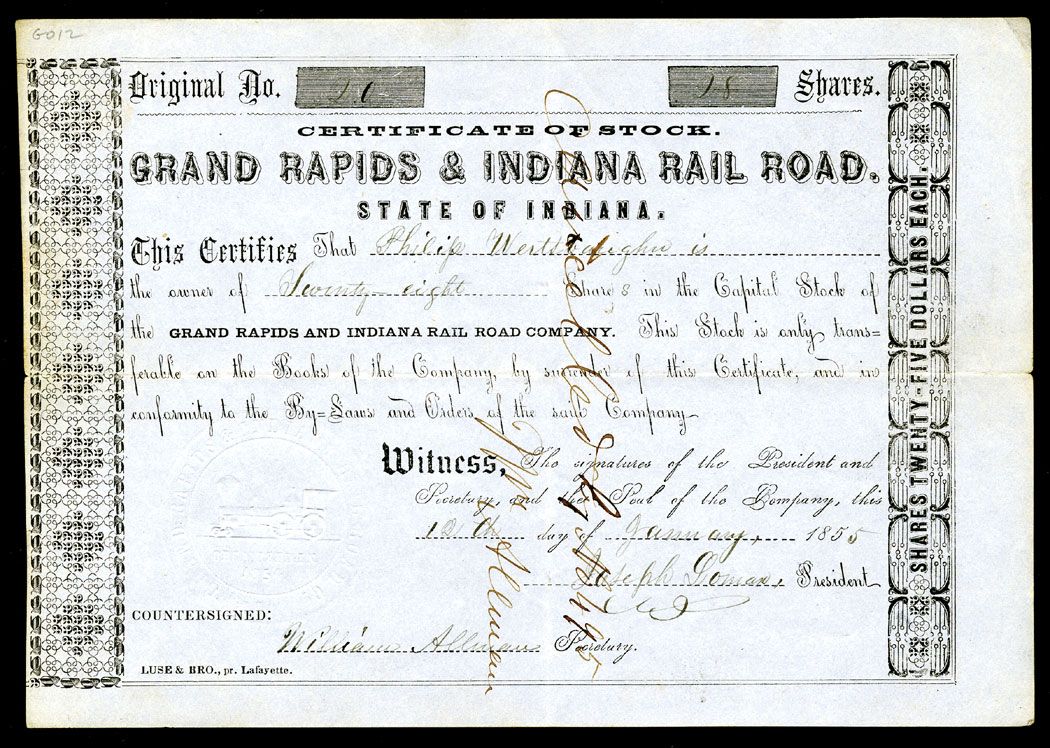 G012
Original No. 20 28 Shares.
CERTIFICATE OF STOCK.
GRAND RAPIDS & INDIANA RAIL ROAD.
STATE OF INDIANA.
This Certifies That Philip is
the owner of Twenty-eight Shares in the Capital Stock of
the GRAND RAPIDS AND INDIANA RAIL ROAD COMPANY. This Stock is only trans=
ferable on the Books of the Company, by surrender of this Certificate, and in
conformity to the By=Laws and Orders of the said Company
Witness, The signatures of the President and
Secretary, and the Seal of the Company, this
day of January, 1855
Joseph Lomax, President
COUNTERSIGNED:
William Allman Secretary.
LUSE & BRO., pr. Lafayette.
SHARES TWENTY-FIVE DOLLARS EACH.
Cancelled
Wm Allman